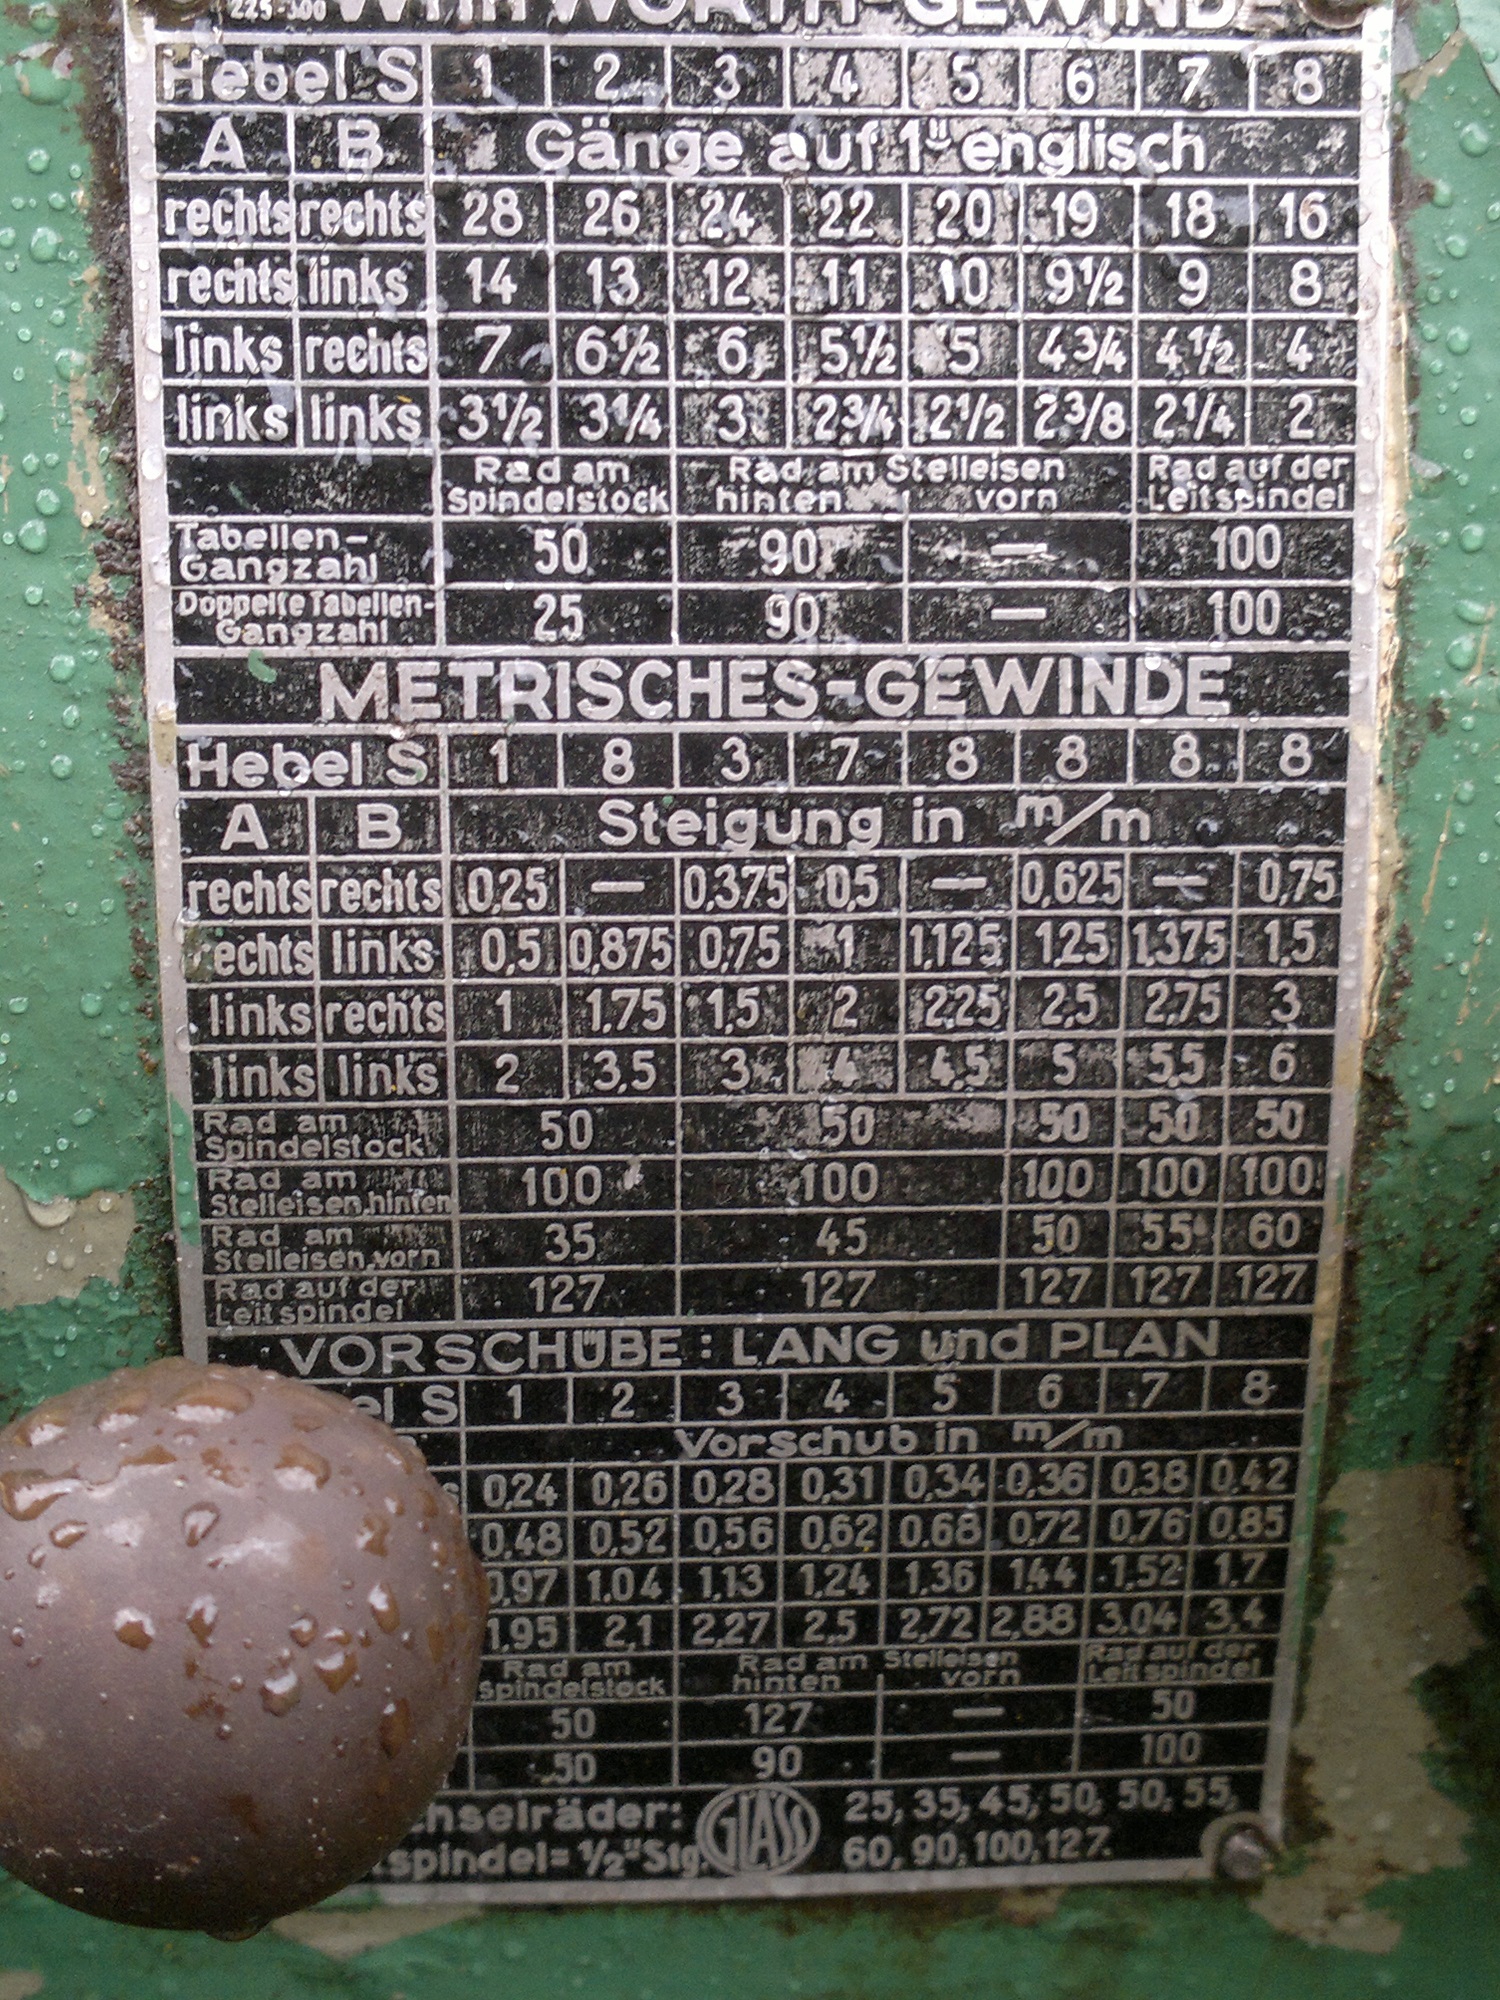 225-300 WHITWORTH-GEWINDE
Hebel S 1 2 3 4 5 6 7 8
A B Gänge auf 1" englisch
rechts rechts 28 26 24 22 20 19 18 16
rechts links 14 13 12 11 10 9½ 9 8
links rechts 7 6½ 6 5½ 5 4¾ 4½ 4
links links 3½ 3¼ 3 2¾ 2½ 2⅜ 2¼ 2
Rad am Rad am Stelleisen Rad auf der
Spindelstock hinten vorn Leitspindel
Tabellen-
Gangzahl 50 90 — 100
Doppelte Tabellen-
Gangzahl 25 90 — 100
METRISCHES-GEWINDE
Hebel S 1 8 3 7 8 8 8 8
A B Steigung in m/m
rechts rechts 0,25 — 0,375 0,5 — 0,625 — 0,75
rechts links 0,5 0,875 0,75 1 1,125 1,25 1,375 1,5
links rechts 1 1,75 1,5 2 2,25 2,5 2,75 3
links links 2 3,5 3 4 4,5 5 5,5 6
Rad am
Spindelstock 50 50 50 50 50
Rad am
Stelleisen, hinten 100 100 100 100 100
Rad am
Stelleisen, vorn 35 45 50 55 60
Rad auf der
Leitspindel 127 127 127 127 127
VORSCHÜBE: LANG und PLAN
el S 1 2 3 4 5 6 7 8
Vorschub in m/m
s 0,24 0,26 0,28 0,31 0,34 0,36 0,38 0,42
0,48 0,52 0,56 0,62 0,68 0,72 0,76 0,85
0,97 1,04 1,13 1,24 1,36 1,44 1,52 1,7
1,95 2,1 2,27 2,5 2,72 2,88 3,04 3,4
Rad am Rad am Stelleisen Rad auf der
Spindelstock hinten vorn Leitspindel
50 127 — 50
50 90 — 100
chselräder: GLASS 25, 35, 45, 50, 50, 55,
spindel= ½" Stg. 60, 90, 100, 127.